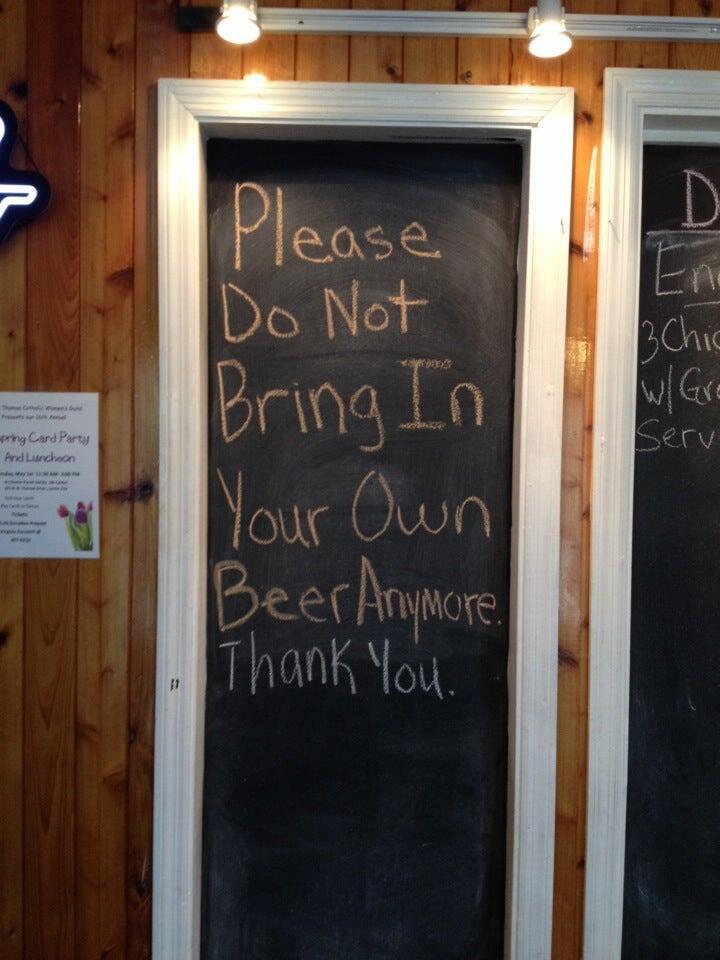 Please
Do Not
Bring In
Your Own
Beer Anymore.
Thank You.
Thomas Catholic Women's Guild
Presents our 26th Annual
Spring Card Party
And Luncheon
D
En
3 Chic
w/ Gr
Serv